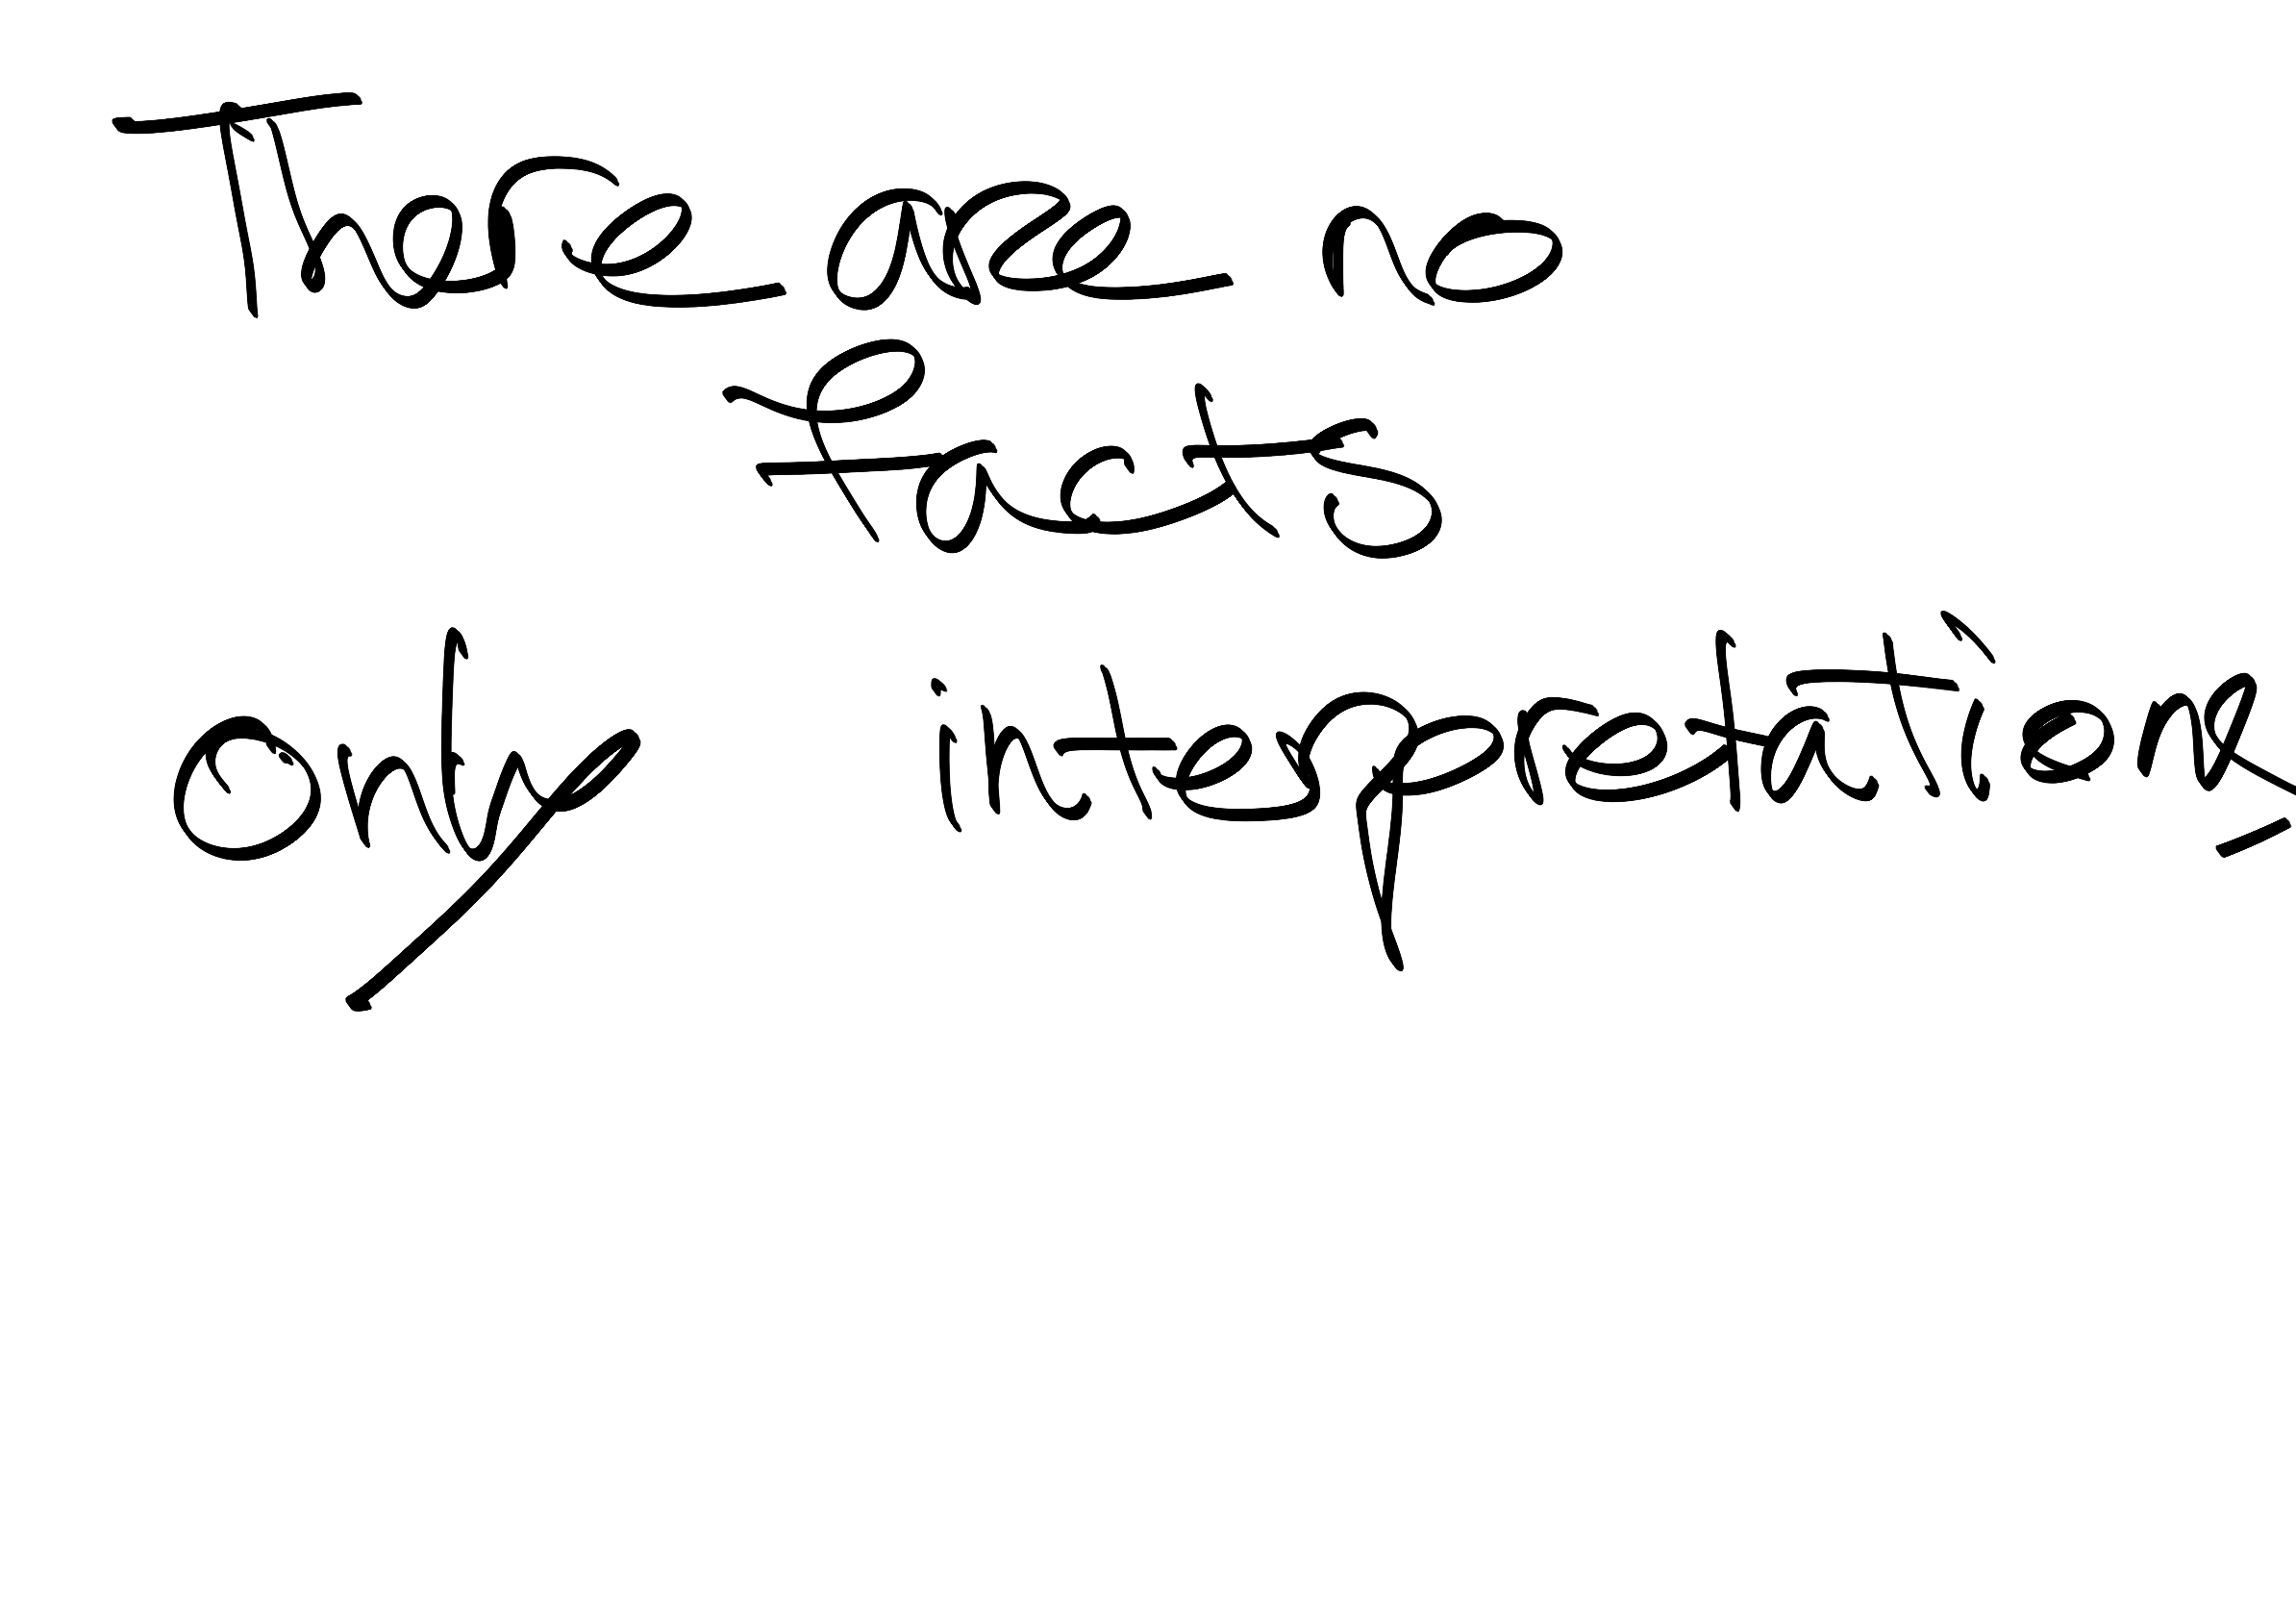 There are no
facts
only interpretations